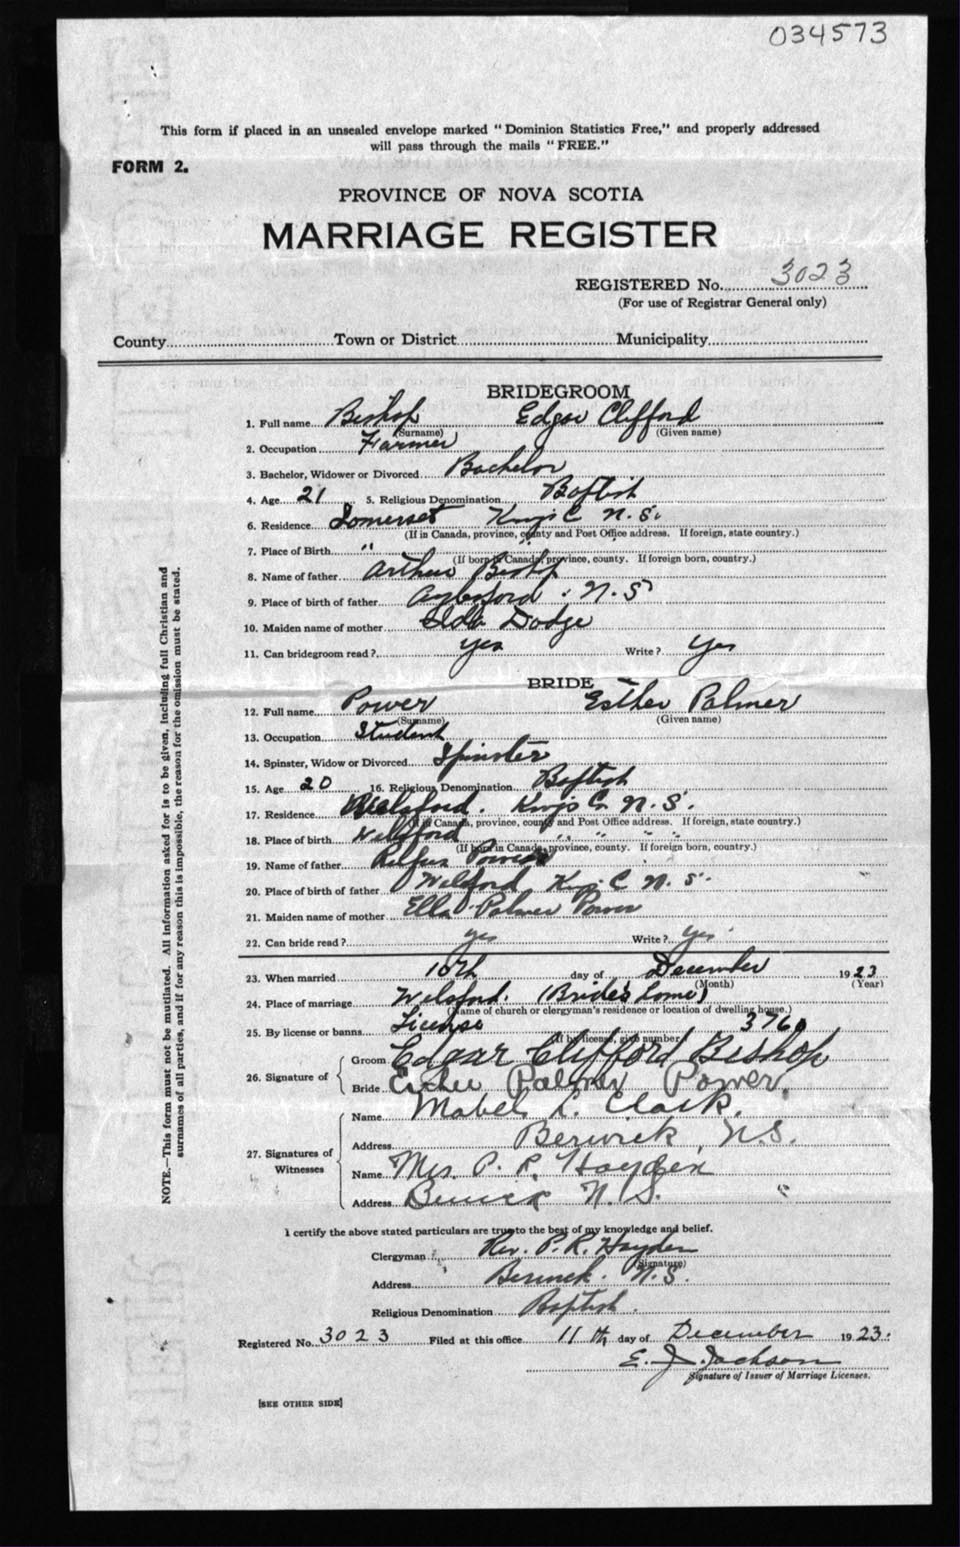 034573
This form if placed in an unsealed envelope marked "Dominion Statistics Free," and properly addressed
will pass through the mails "FREE."
FORM 2.
PROVINCE OF NOVA SCOTIA
MARRIAGE REGISTER
REGISTERED No. 3023
(For use of Registrar General only)
County Town or District Municipality
BRIDEGROOM
1. Full name Bishop Edgar Clifford
(Surname) (Given name)
2. Occupation Farmer
3. Bachelor, Widower or Divorced Bachelor
4. Age 21 5. Religious Denomination Baptist
6. Residence Somerset Kings C N.S.
(If in Canada, province, county and Post Office address. If foreign, state country.)
7. Place of Birth "
(If born in Canada, province, county. If foreign born, country.)
8. Name of father Arthur Bishop
9. Place of birth of father Aylesford N.S
10. Maiden name of mother Ilda Dodge
11. Can bridegroom read? yes Write? Yes
BRIDE
12. Full name Power Esther Palmer
(Surname) (Given name)
13. Occupation Student
14. Spinster, Widow or Divorced Spinster
15. Age 20 16. Religious Denomination Baptist
17. Residence Kings Co N.S.
(If in Canada, province, county and Post Office address. If foreign, state country.)
18. Place of birth Welsford " " " "
(If born in Canada, province, county. If foreign born, country.)
19. Name of father Power
20. Place of birth of father Welsford Kings C N.S.
21. Maiden name of mother Ella Palmer Power
22. Can bride read? yes Write? yes
23. When married 10th day of December 1923
(Month) (Year)
24. Place of marriage Welsford. (Bride's home)
(Name of church or clergyman's residence or location of dwelling house.)
25. By license or banns License 3760
(If by license, give number)
26. Signature of
Groom Edgar Clifford Bishop
Bride Esther Palmer Power.
27. Signatures of Witnesses
Name Mabel L. Clark.
Address Berwick, N.S.
Name Mrs. P. R. Hayden
Address Berwick N.S.
I certify the above stated particulars are true to the best of my knowledge and belief.
Clergyman Rev. P. R. Hayden
(Signature)
Address Berwick. N.S.
Religious Denomination Baptist.
Registered No. 3023 Filed at this office 11th day of December 1923.
E. J. Jackson
Signature of Issuer of Marriage Licenses.
[SEE OTHER SIDE]
NOTE.—This form must not be mutilated. All information asked for is to be given, including full Christian and
surnames of all parties, and if for any reason this is impossible, the reason for the omission must be stated.